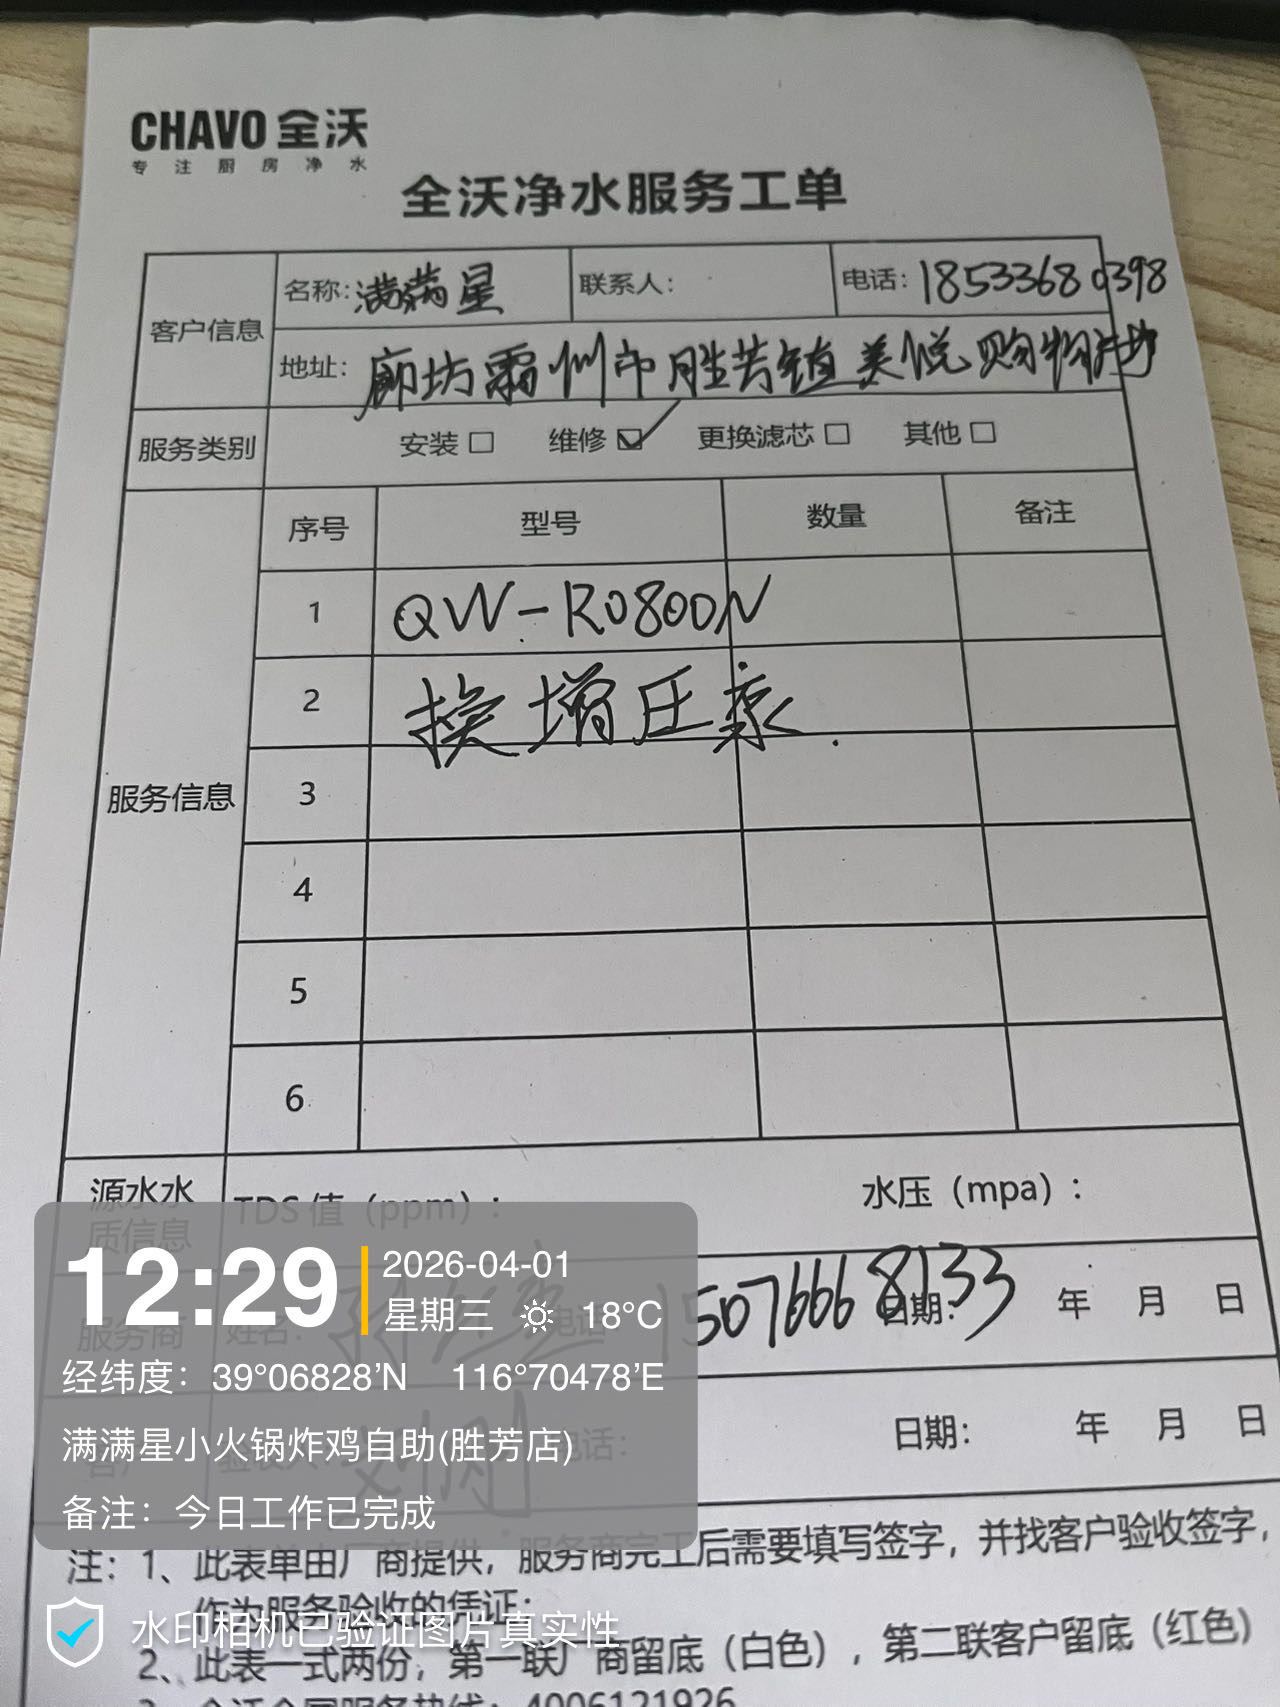 CHAVO 全沃
专注厨房净水
全沃净水服务工单
客户信息 名称: 满满星 联系人: 电话: 18533680398
地址: 廊坊霸州市胜芳镇美悦购物广场
服务类别 安装 □ 维修 ☑ 更换滤芯 □ 其他 □
服务信息 序号 型号 数量 备注
1 QW-RO800N
2 换增压泵.
3
4
5
6
源水水质信息 TDS 值（ppm）: 水压（mpa）:
服务商 姓名: 电话 15076668133 日期: 年 月 日
验收人: 电话: 日期: 年 月 日
注: 1、此表单由厂商提供，服务商完工后需要填写签字，并找客户验收签字，
作为服务验收的凭证;
2、此表一式两份，第一联厂商留底（白色），第二联客户留底（红色）
3、全沃全国服务热线: 4006121926
12:29
2026-04-01
星期三 18°C
经纬度: 39°06828'N 116°70478'E
满满星小火锅炸鸡自助(胜芳店)
备注: 今日工作已完成
水印相机已验证图片真实性